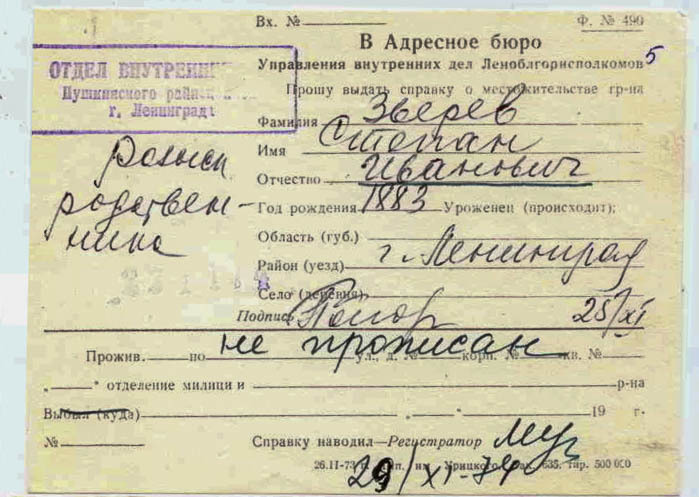 Вх. № Ф. № 490
В Адресное бюро
Управления внутренних дел Леноблгорисполкомов 5
ОТДЕЛ ВНУТРЕНН
Пушкинского район
г. Ленинграда
Прошу выдать справку о местожительстве гр-на
Фамилия Зверев
Имя Степан
Отчество Иванович
розыск
родствен-
ника
Год рождения 1883 Уроженец (происходит):
Область (губ.)
Район (уезд) г. Ленинград
Село (деревня)
Подпись 25/XI
не прописан
Прожив. по ул., д. № корп. № кв. №
„ “ отделение милиции р-на
Выбыл (куда) „ “ 19 г.
№ Справку наводил — Регистратор
26.II-73 г. тип. им. Урицкого, зак. 635, тир. 500 000
29/XI-74